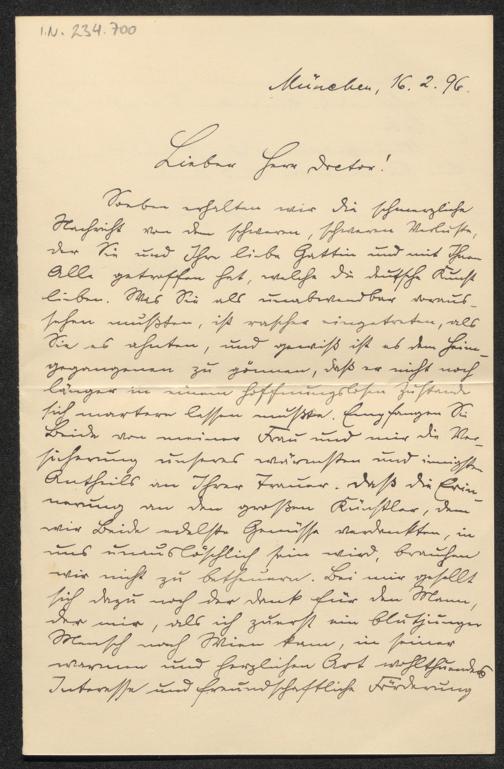 I.N. 234.700
München, 16. 2. 96.
Lieber Herr Doctor!
Soeben erhalten wir die schmerzliche
Nachricht von dem schweren, schweren Verluste,
der Sie und Ihre liebe Gattin und mit Ihnen
Alle getroffen hat, welche die deutsche Kunst
lieben. Was Sie als unabwendbar voraus-
sehen mußten, ist rascher eingetreten, als
Sie es ahnten, und gewiß ist es dem Heim-
gegangenen zu gönnen, daß er nicht noch
länger in einem hoffnungslosen Zustande
sich martern lassen mußte. Empfangen Sie
Beide von meiner Frau und mir die Ver-
sicherung unseres wärmsten und innigsten
Antheils an Ihrer Trauer. Daß die Erin-
nerung an den großen Künstler, dem
wir Beide edelste Genüsse verdankten, in
uns unauslöschlich sein wird, brauchen
wir nicht zu betheuern. Bei mir gesellt
sich dazu noch der Dank für den Mann,
der mir, als ich zuerst ein blutjunger
Mensch nach Wien kam, in seiner
warmen und herzlichen Art wohlthuendes
Interesse und freundschaftliche Förderung